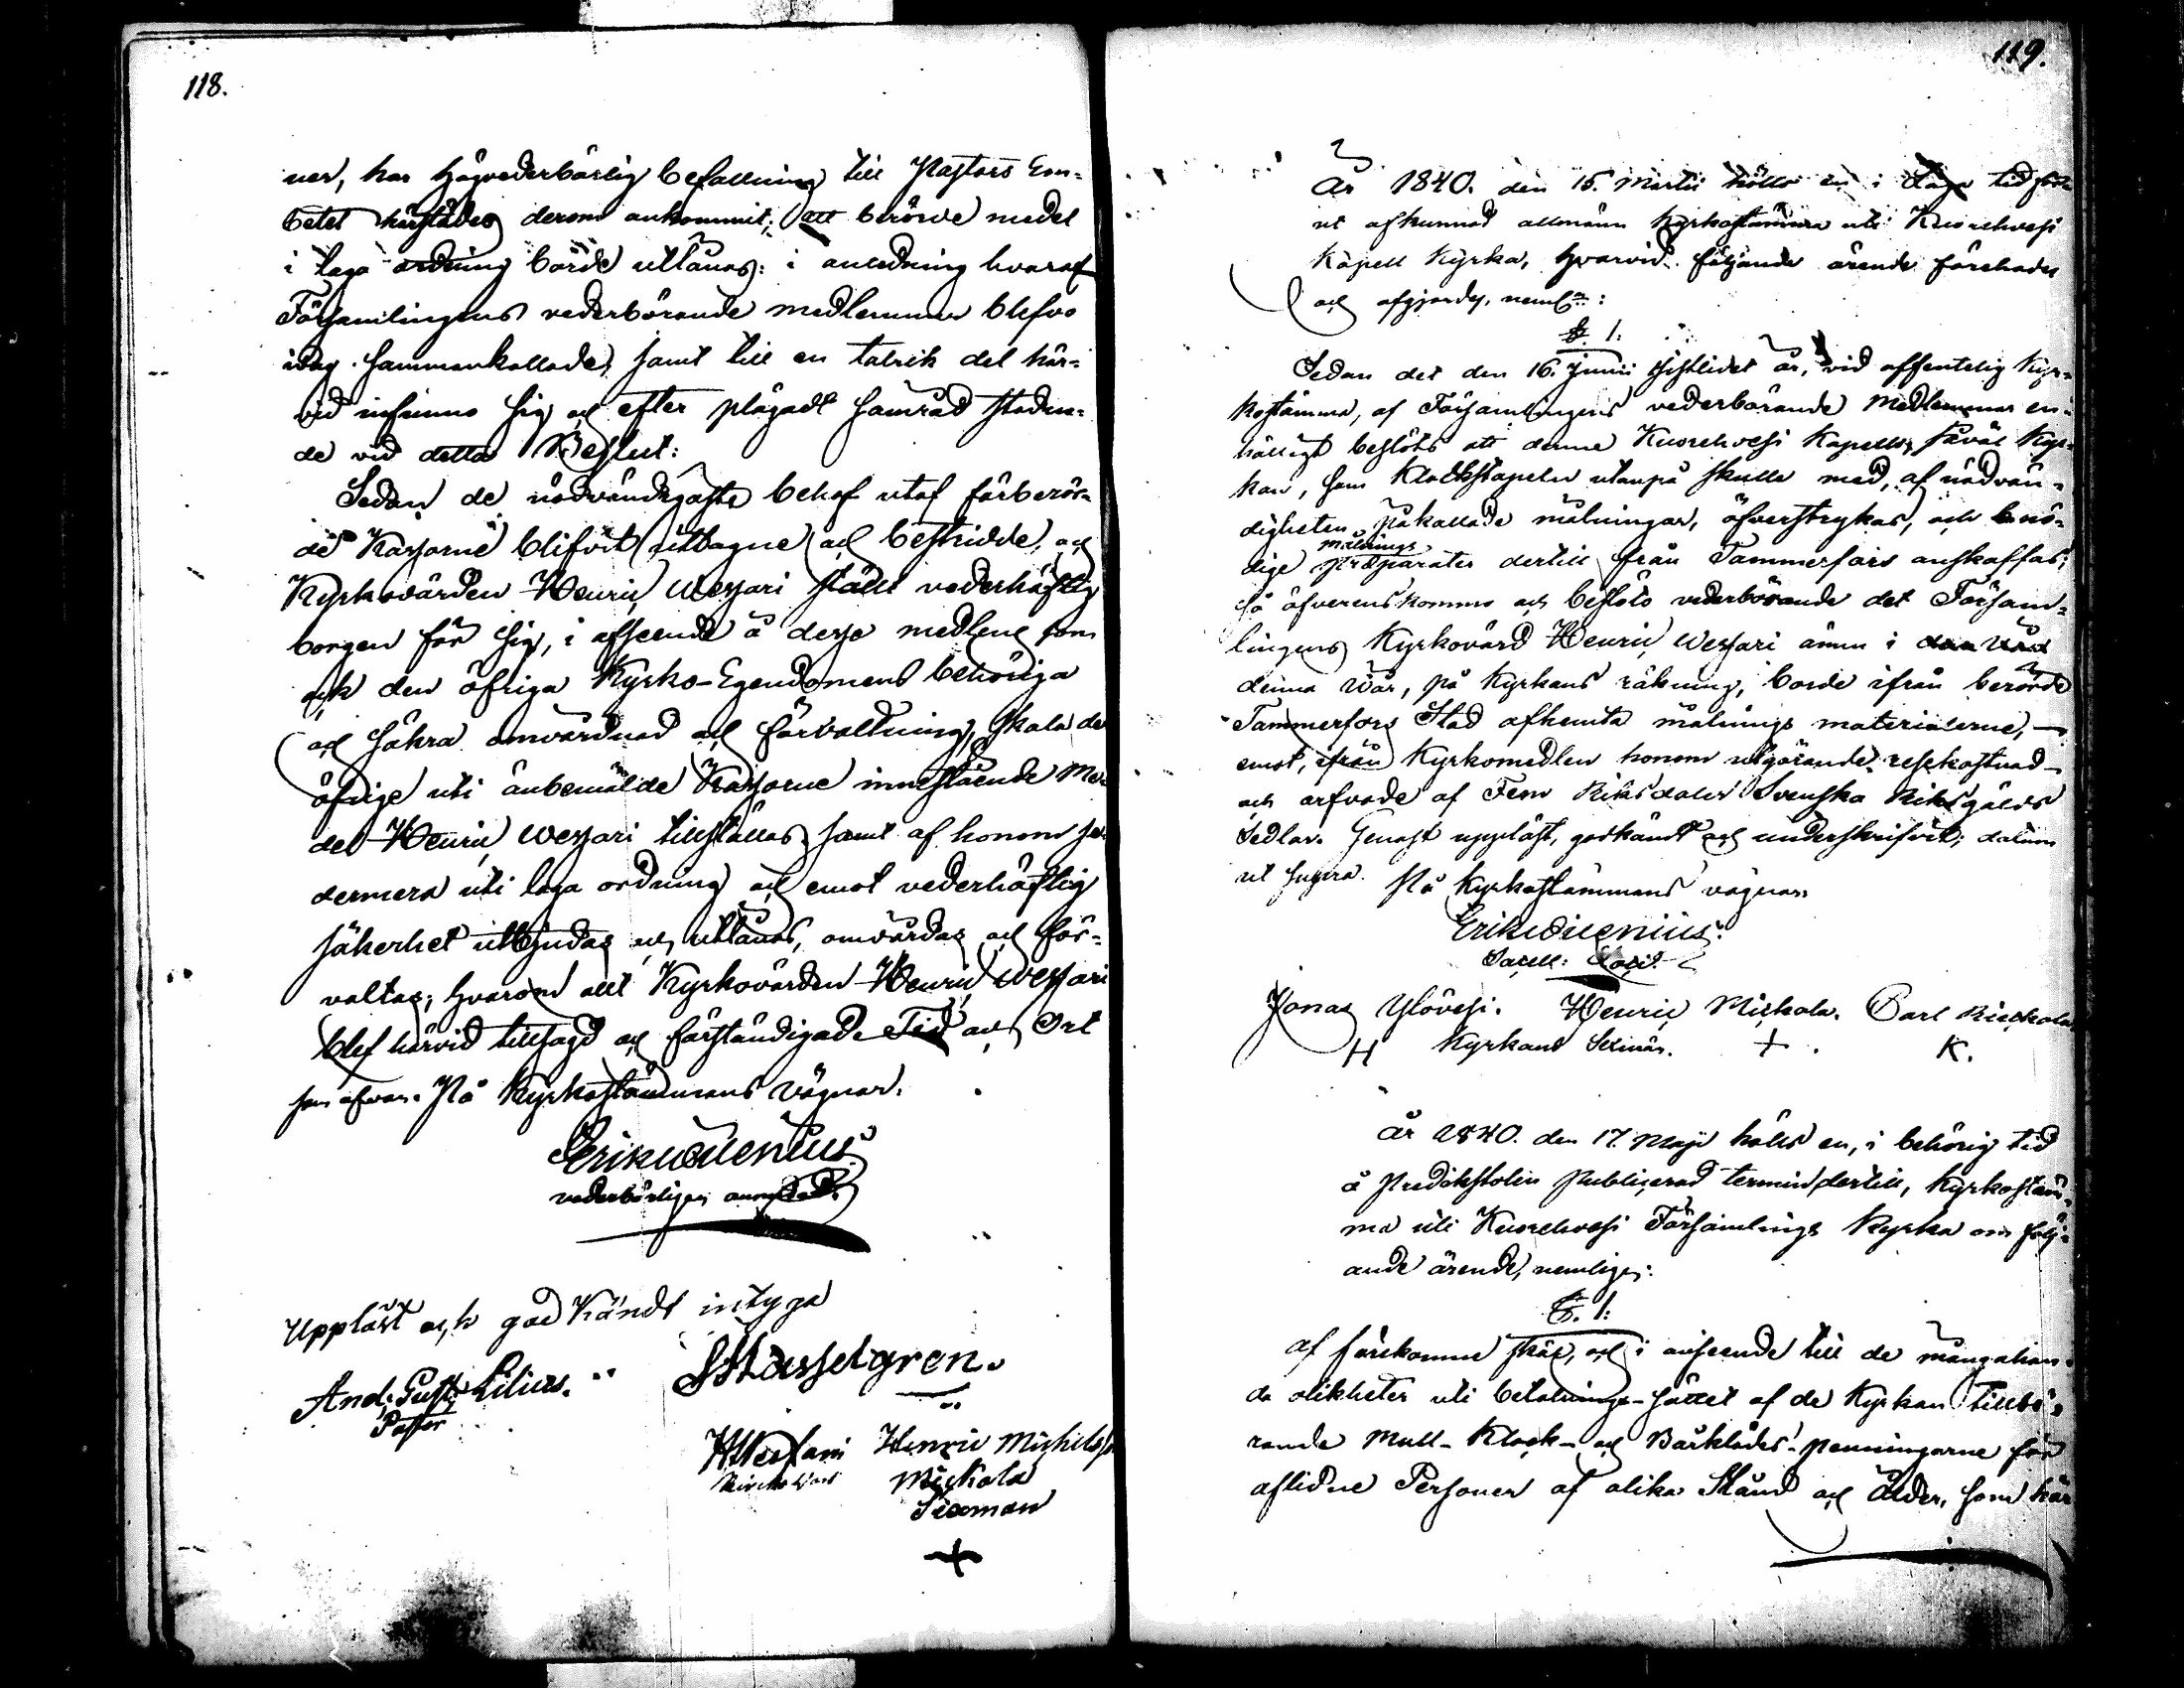 118.
ner, har högvederbörlig befallning till Pastors Em-
betet härstädes derom ankommit; att berörde medel
i laga ordning borde utlånas: i anledning hvaraf
Församlingens vederbörande medlemmar blefvo
idag sammankallade, samt till en talrik del här-
vid infunno sig och efter plägadt samråd stadna-
de vid detta Beslut:
Sedan de nödvändigaste behof utaf förberör-
de Kassorne blifvit uttagne och bestridde, och
Kyrkovärden Henric Wessari ställt vederhäftig
borgen för sig, i afseende å desse medlens som
ock den öfriga Kyrko-Egendomens behöriga
och säkra omvårdnad och förvaltning, skola de
öfrige uti ånbemälde Kassorne innestående Me-
del Henric Wessari tillställas, samt af honom se-
dermera uti laga ordning och emot vederhäftig
säkerhet utbjudas och utlånas, omvårdas och för-
valtas; hvarom allt Kyrkovärden Henric Wessari
blef härvid tillsagd och förständigad. Tid och Ort
som ofvan. På Kyrkostämmans Vägnar.
Erik Wenius
vederbörligen anmodad.
Uppläst och god Kändt intyga
And: Gust: Lilius. Hasselgren.
Pastor
HWessari Henric Michelss
Mickola
Sexman
+
119.
År 1840. den 15. Martii hölls en i Laga tid för-
ut afkunnad allmänn Kyrkostämma uti Kuorehvesi
Kapell Kyrka, hvarvid följande ärende förehades
och afgjordes, neml:n:
§. 1:
Sedan det den 16. Junii sistlidet år, vid offentelig Kyr-
kostämma, af Församlingens vederbörande Medlemmar en-
hälligt beslöts att denne Kuorehvesi Kapells, såväl Kyr-
kan, som Klockstapeln utanpå skulle med, af nödvän-
digheten påkallade målningar, öfverstrykas, och benö-
dige målnings præparater dertill från Tammerfors anskaffas;
så öfverenskommo och beslöto vederbörande det Försam-
lingens Kyrkovärd Henric Wessari ännu i
denna Vår, på Kyrkans räkning, borde ifrån berörde
Tammerfors Stad afhemta målnings materialerne, —
emot, ifrån Kyrkomedlen honom utgörande, resekostnad
och arfvode af Fem Riksdaler Svenska Riksgälds
Sedlar. Genast uppläst, godkändt och underskrifvit; datum
ut supra. På Kyrkostämmans vägnar:
Erik Wenius.
Sacell:
Jonas Ylövesi. Henric Mickola. Carl Rieckola
H Kyrkans Sexmän. + . K.
År 1840. den 17. Maji hölls en, i behörig tid
å Predikstolen publicerad termin dertill, Kyrkostäm-
ma uti Kuorehvesi Församlings Kyrka om följ-
ande ärende, nemligen:
§. 1:
Af förekomne skäl, och i anseende till de mångahan-
da olikheter uti betalnings-sättet af de Kyrkan tillhö-
rande Mull- Klock- och Bårklädes-penningarne för
aflidne Personer af olika Stånd och Ålder, som här